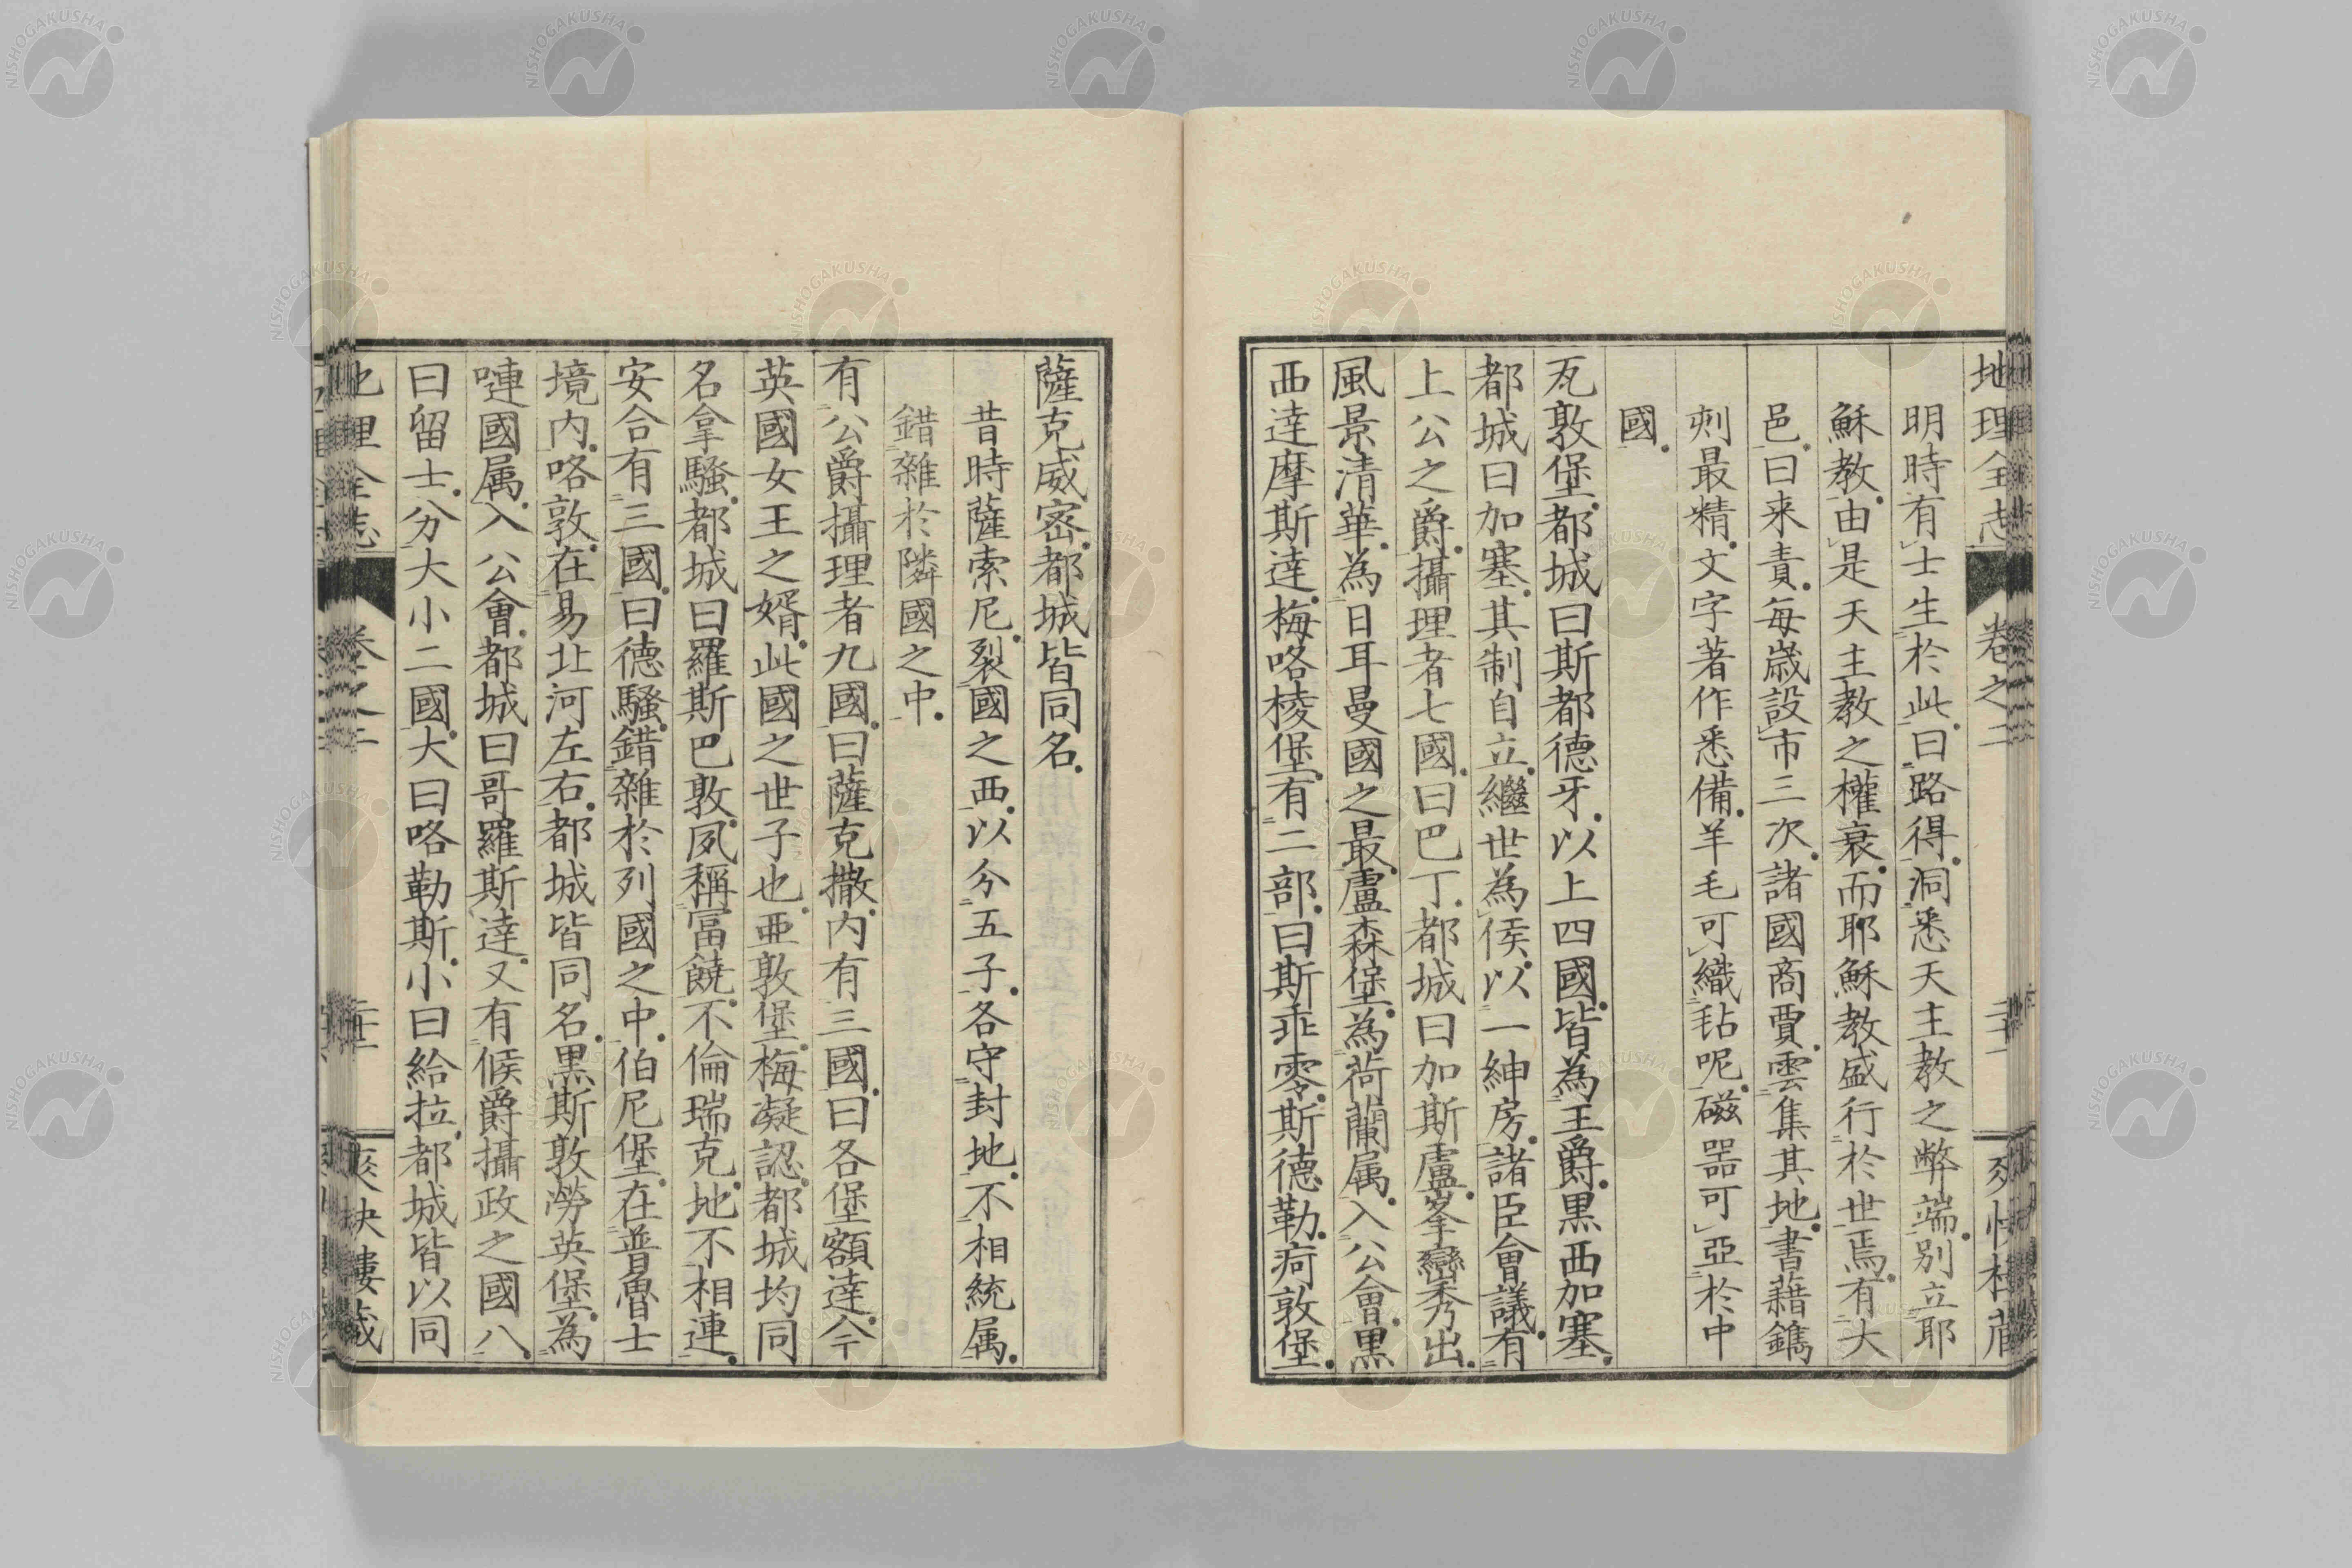 地理全志 卷之二
明時有士生於此曰路得洞悉天主教之弊端別立耶
穌教由是天主教之權衰而耶穌教盛行於世焉有大
邑曰来責每歳設市三次諸國商賈雲集其地書藉鐫
刺最精文字著作悉備羊毛可織毡呢磁噐可亞於中
國
瓦敦堡都城曰斯都德牙以上四國皆為王爵黒西加塞
都城曰加塞其制自立繼世為侯以一紳房諸臣會議有
上公之爵攝理者七國曰巴丁都城曰加斯盧峯巒秀出
風景清華為日耳曼國之最盧森堡為荷蘭属入公會黒
西達摩斯達梅咯棱堡有二部曰斯乖零斯德勒疴敦堡
薩克威密都城皆同名
昔時薩索尼裂國之西以今五子各守封地不相統属
錯雜於隣國之中
有公爵攝理者九國曰薩克撒内有三國曰各堡額達今
英國女王之婿此國之世子也亜敦堡梅凝認都城均同
名拿騷都城曰羅斯巴敦夙稱富饒不倫瑞克地不相連
安合有三國曰德騷錯雜於列國之中伯尼堡在普魯士
境内咯敦在易北河左右都城皆同名黒斯敦勞英堡為
嗹國属入公會都城曰哥羅斯達又有候爵攝政之國八
曰留士分大小二國大曰咯勒斯小曰給拉都城皆以同
地理全志 卷之二
NISHOGAKUSHA